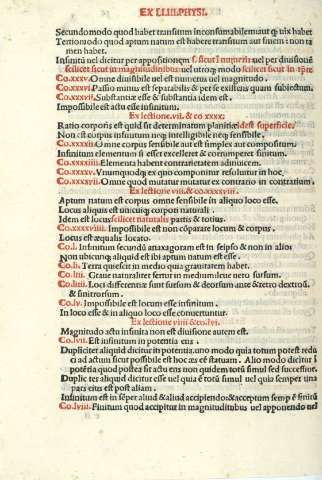 EX LI.III.PHYSI.
Secundo modo quod habet transitum inconsumabilem aut q̃ uix habet
Tertio modo quod aptum natum est habere transitum aut finem: non ta
men habet.
Infinitũ uel dicitur per appositionem s. sicut ī numeris uel per diuisionẽ
scilicet sicut in magnitudinibus uel utroq; modo scilicet sicut in tp̃re
Co.xxxv. Omne diuisibile uel est numerus uel magnitudo.
Co.xxxvi. Passio minus est separabilis & per se existens quam subiectum.
Co.xxxvii. Substantiæ esse & substantia idem est.
Impossibile est actu esse infinitum.
Ex lectione.vii. & co xxxx.
Ratio corporis est quid sit determinatum planicie id est superficie.
Non est corpus infinitum neq; intelligibile neq; sensibile.
Co.xxxxii. Omne corpus sensibile aut est simplex aut compositum.
Infinitum elementum si esset excelleret & corrumperet finitum.
Co.xxxxiii. Elementa habent contrarietatem adinuicem.
Co.xxxxv. Vnumquodq; ex quo componitur resoluitur in hoc.
Co.xxxxvii. Omne quod mutatur mutatur ex contrario in contrarium.
Ex lectione viii. & co.xxxxviii.
Aptum natum est corpus omne sensibile in aliquo loco esse.
Locus aliquis est uniuscuiusq; corporis naturalis.
Idem est locus scilicet naturalis partis & totius.
Co.xxxxviiii. Impossibile est non cõparare locus & corpus.
Locus est æqualis locato.
Co.l. Infinitum secundũ anaxagoram est in seipso & non in alio
Non ubicunq; aliquid est ibi aptum natum est esse.
Co.li. Terra quiescit in medio quia grauitatem habet.
Co.liii. Graue naturaliter fertur in medium leue uero sursum.
Co.liiii. Loci differentiæ sunt sursum & deorsum ante & retro dextrorũ
& sinistrorsum.
Co.lv. Impossibile est locum esse infinitum.
In loco esse & in aliquo loco esse conuertuntur.
Ex lectione viiii & co.lvi.
Magnitudo actu infinita non est diuisione autem est.
Co.lvii. Est infinitum in potentia ens.
Dupliciter aliquid dicitur in potentia, uno modo quia totum potest redu
ci ad actum sicut possibile est hoc æs eẽ statuam. Alio modo dicitur ī
potẽtia quod postea sit actu ens non quidem totũ simul sed successiue.
Dupliciter aliquid dicitur esse uel quia ẽ totũ simul uel quia semper una
pars eius est post aliam.
Infinitum est in sẽper aliud & aliud accipiendo & acceptum semp̃ ẽ finitũ
Co.lviii. Finitum quod accipitur in magnitudinibus uel apponendo uel